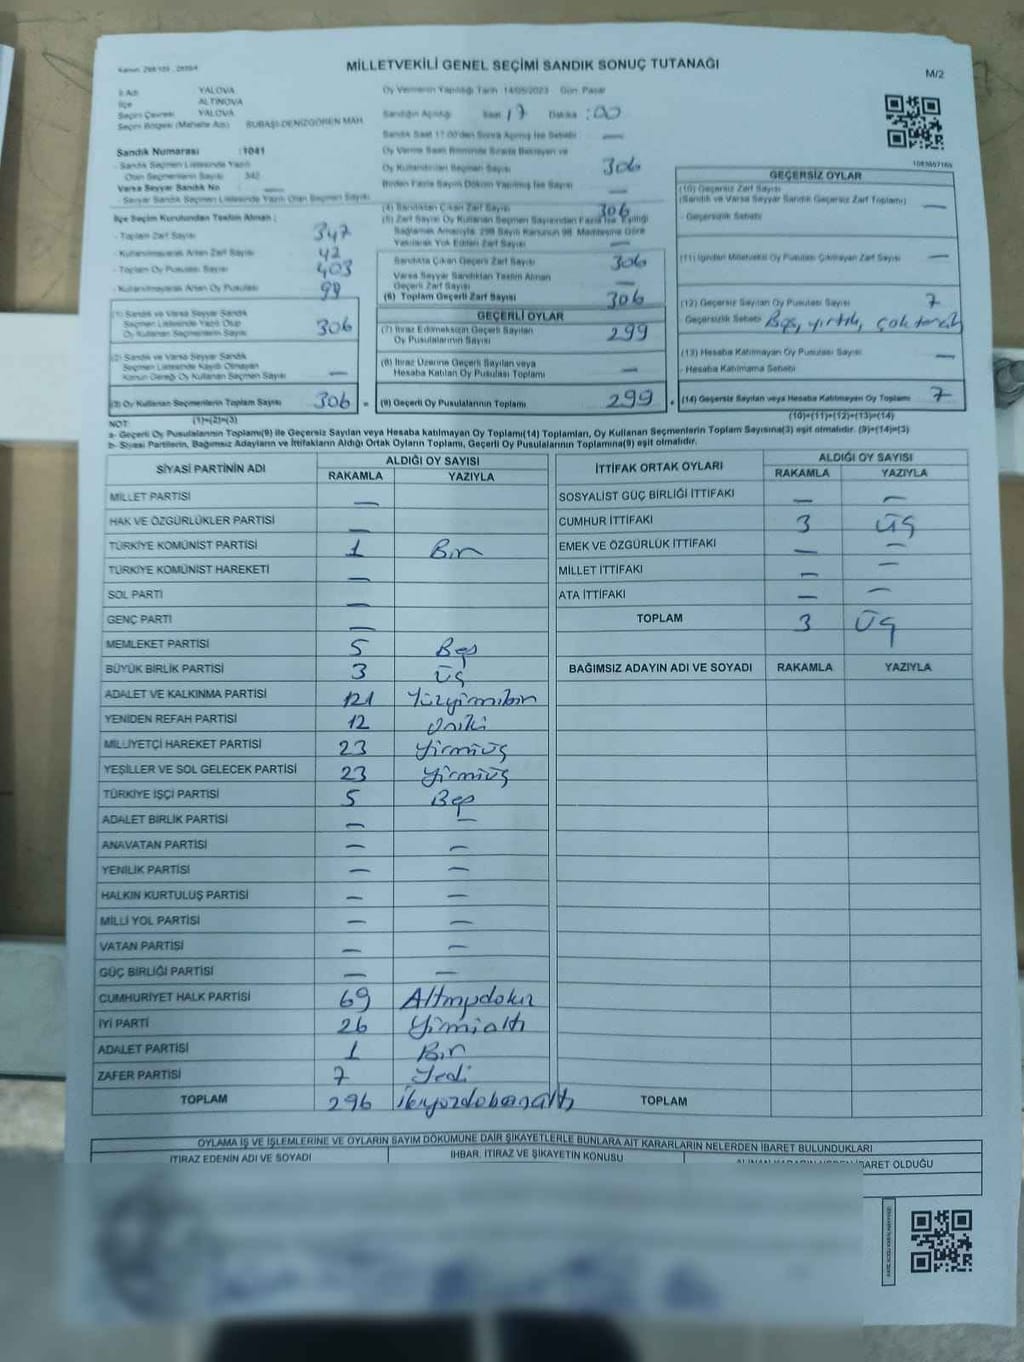 MİLLETVEKİLİ GENEL SEÇİMİ SANDIK SONUÇ TUTANAĞI
M/2
İl Adı YALOVA
İlçe ALTINOVA
Seçim Çevresi YALOVA
Seçim Bölgesi (Mahalle Adı) SUBAŞI-DENİZGÖREN MAH
Sandık Numarası :1041
- Sandık Seçmen Listesinde Yazılı
Olan Seçmenlerin Sayısı 342
Varsa Seyyar Sandık No —
- Seyyar Sandık Seçmen Listesinde Yazılı Olan Seçmen Sayısı
İlçe Seçim Kurulundan Teslim Alınan :
- Toplam Zarf Sayısı 347
- Kullanılmayarak Artan Zarf Sayısı 42
- Toplam Oy Pusulası Sayısı 403
- Kullanılmayarak Artan Oy Pusulası 98
(1) Sandık ve Varsa Seyyar Sandık
Seçmen Listesinde Yazılı Olup
Oy Kullanan Seçmenlerin Sayısı 306
(2) Sandık ve Varsa Seyyar Sandık
Seçmen Listesinde Kayıtlı Olmayan
Kanun Gereği Oy Kullanan Seçmen Sayısı —
(3) Oy Kullanan Seçmenlerin Toplam Sayısı 306 =
(1)+(2)=(3)
Oy Vermenin Yapıldığı Tarih :14/05/2023 Gün :Pazar
Sandığın Açıldığı Saat :17 Dakika :00
Sandık Saat 17:00'den Sonra Açılmış İse Sebebi —
Oy Verme Saati Bitiminde Sırada Bekleyen ve
Oy Kullandırılan Seçmen Sayısı 306
Birden Fazla Sayım Döküm Yapılmış İse Sayısı —
(4) Sandıktan Çıkan Zarf Sayısı 306
(5) Zarf Sayısı Oy Kullanan Seçmen Sayısından Fazla İse, Eşitliği
Sağlamak Amacıyla, 298 Sayılı Kanunun 98. Maddesine Göre
Yakılarak Yok Edilen Zarf Sayısı —
Sandıkta Çıkan Geçerli Zarf Sayısı 306
Varsa Seyyar Sandıktan Teslim Alınan
Geçerli Zarf Sayısı —
(6) Toplam Geçerli Zarf Sayısı 306
GEÇERLİ OYLAR
(7) İtiraz Edilmeksizin Geçerli Sayılan
Oy Pusulalarının Sayısı 299
(8) İtiraz Üzerine Geçerli Sayılan veya
Hesaba Katılan Oy Pusulası Toplamı —
(9) Geçerli Oy Pusulalarının Toplamı 299 +
GEÇERSİZ OYLAR
(10) Geçersiz Zarf Sayısı
(Sandık ve Varsa Seyyar Sandık Geçersiz Zarf Toplamı) —
- Geçersizlik Sebebi
(11) İçinden Milletvekili Oy Pusulası Çıkmayan Zarf Sayısı —
(12) Geçersiz Sayılan Oy Pusulası Sayısı 7
- Geçersizlik Sebebi Boş, yırtık,
(13) Hesaba Katılmayan Oy Pusulası Sayısı —
- Hesaba Katılmama Sebebi
(14) Geçersiz Sayılan veya Hesaba Katılmayan Oy Toplamı 7
(10)+(11)+(12)+(13)=(14)
NOT:
a- Geçerli Oy Pusulalarının Toplamı(9) ile Geçersiz Sayılan veya Hesaba katılmayan Oy Toplamı(14) Toplamları, Oy Kullanan Seçmenlerin Toplam Sayısına(3) eşit olmalıdır. (9)+(14)=(3)
b- Siyasi Partilerin, Bağımsız Adayların ve İttifakların Aldığı Ortak Oyların Toplamı, Geçerli Oy Pusulalarının Toplamına(9) eşit olmalıdır.
SİYASİ PARTİNİN ADI ALDIĞI OY SAYISI
RAKAMLA YAZIYLA
MİLLET PARTİSİ —
HAK VE ÖZGÜRLÜKLER PARTİSİ —
TÜRKİYE KOMÜNİST PARTİSİ 1 Bir
TÜRKİYE KOMÜNİST HAREKETİ —
SOL PARTİ —
GENÇ PARTİ —
MEMLEKET PARTİSİ 5 Beş
BÜYÜK BİRLİK PARTİSİ 3 Üç
ADALET VE KALKINMA PARTİSİ 121 Yüzyirmibir
YENİDEN REFAH PARTİSİ 12 Oniki
MİLLİYETÇİ HAREKET PARTİSİ 23 Yirmiüç
YEŞİLLER VE SOL GELECEK PARTİSİ 23 Yirmiüç
TÜRKİYE İŞÇİ PARTİSİ 5 Beş
ADALET BİRLİK PARTİSİ — —
ANAVATAN PARTİSİ — —
YENİLİK PARTİSİ — —
HALKIN KURTULUŞ PARTİSİ — —
MİLLİ YOL PARTİSİ — —
VATAN PARTİSİ — —
GÜÇ BİRLİĞİ PARTİSİ — —
CUMHURİYET HALK PARTİSİ 69 Altmışdokuz
İYİ PARTİ 26 Yirmialtı
ADALET PARTİSİ 1 Bir
ZAFER PARTİSİ 7 Yedi
TOPLAM 296 İkiyüzdoksanaltı
İTTİFAK ORTAK OYLARI ALDIĞI OY SAYISI
RAKAMLA YAZIYLA
SOSYALİST GÜÇ BİRLİĞİ İTTİFAKI — —
CUMHUR İTTİFAKI 3 Üç
EMEK VE ÖZGÜRLÜK İTTİFAKI — —
MİLLET İTTİFAKI — —
ATA İTTİFAKI — —
TOPLAM 3 Üç
BAĞIMSIZ ADAYIN ADI VE SOYADI RAKAMLA YAZIYLA
TOPLAM
OYLAMA İŞ VE İŞLEMLERİNE VE OYLARIN SAYIM DÖKÜMÜNE DAİR ŞİKAYETLERLE BUNLARA AİT KARARLARIN NELERDEN İBARET BULUNDUKLARI
İTİRAZ EDENİN ADI VE SOYADI
İHBAR, İTİRAZ VE ŞİKAYETİN KONUSU
İBARET OLDUĞU